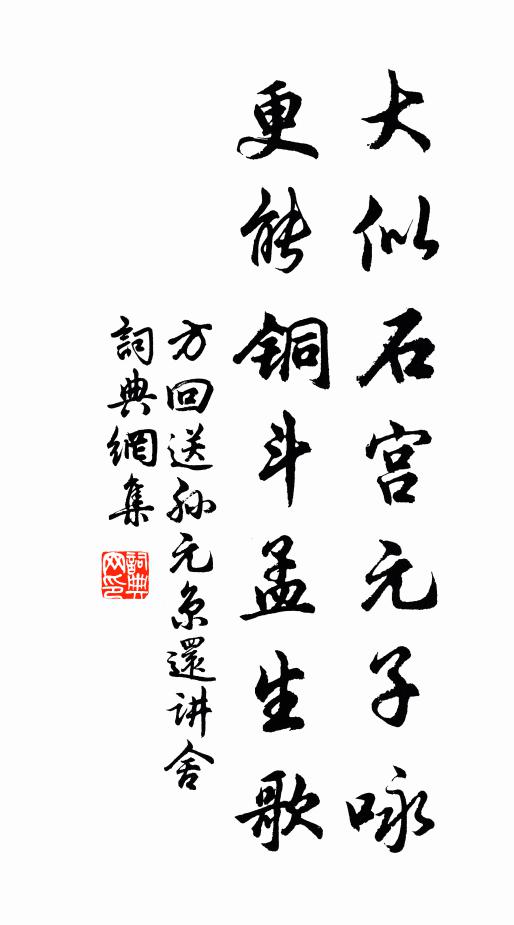 大似石宫元子咏
更能铜斗孟生歌
方回送孙元京還讲舍
詞典網集
詞典網印